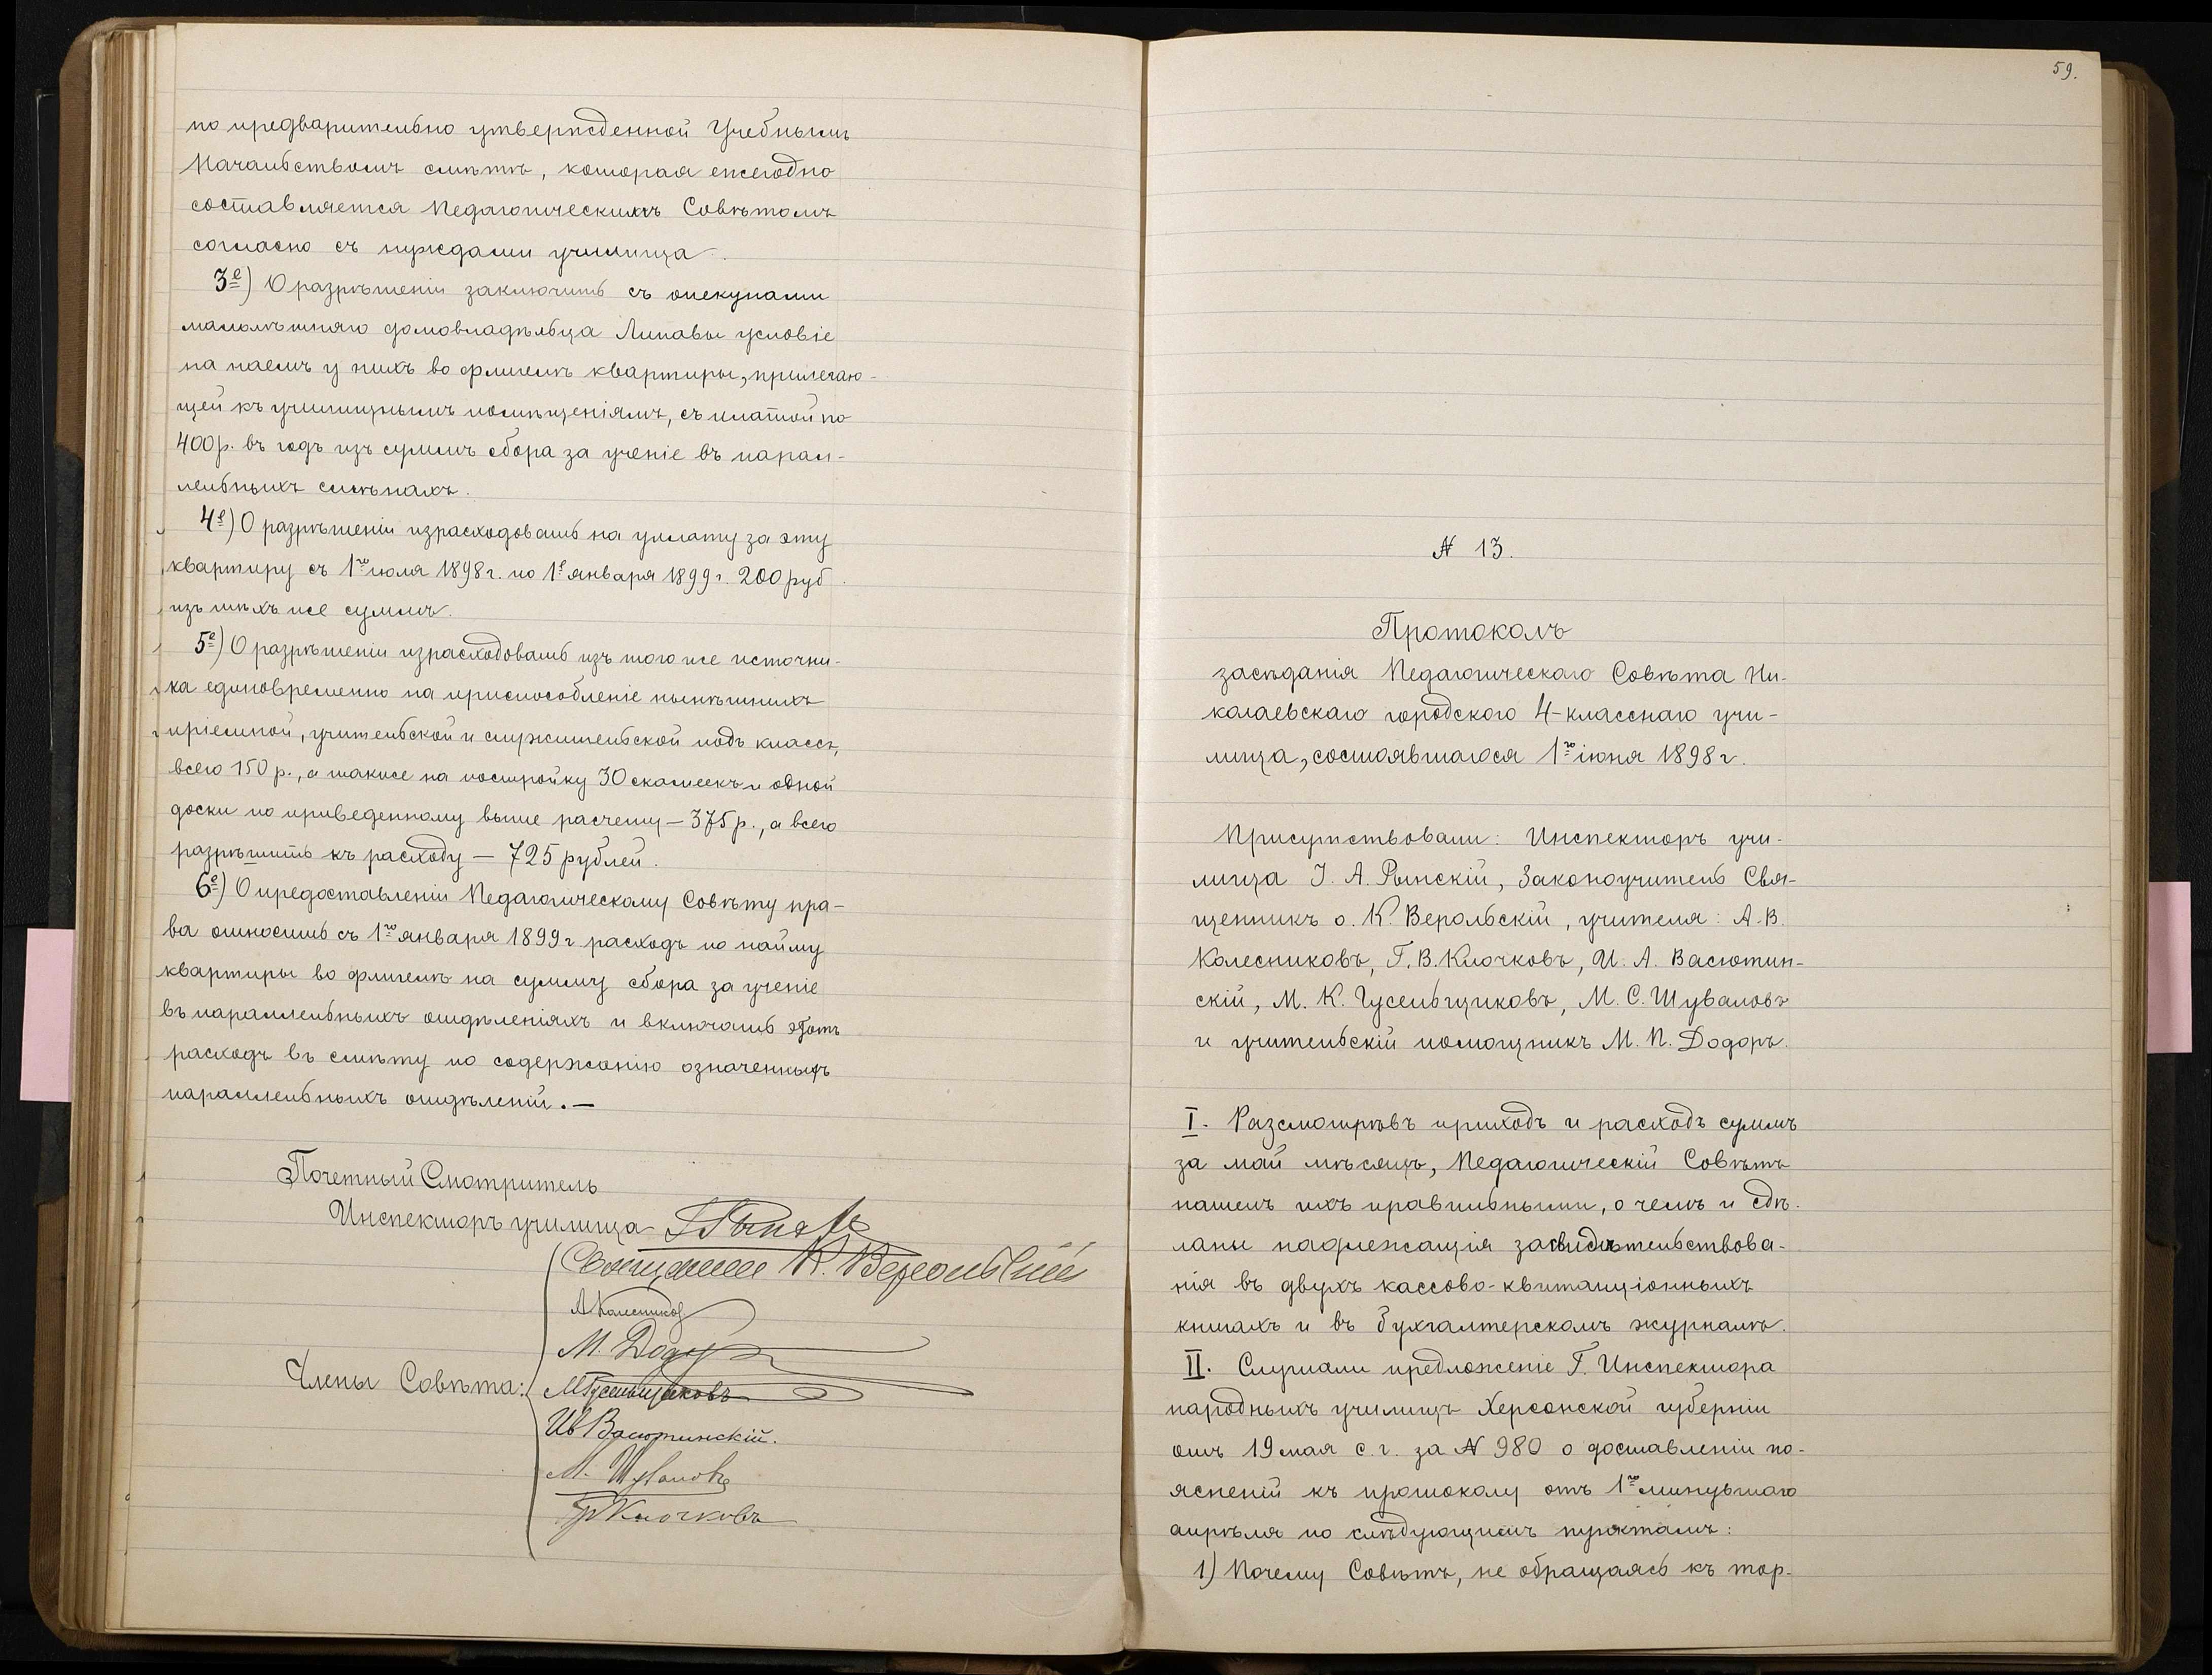 по предварительно утвержденной Учебнымъ
Начальствомъ смѣтѣ, которая ежегодно
составляется Педагогическимъ Совѣтомъ
согласно съ нуждами училища.
3е) О разрѣшеніи заключить съ опекунами
малолѣтняго домовладѣльца Липавы условіе
на наемъ у нихъ во флигелѣ квартиры, прилегаю-
щей къ училищнымъ помѣщеніямъ, съ платой по
400 р. въ годъ изъ суммъ сбора за ученіе въ парал-
лельныхъ смѣнахъ.
4е) О разрѣшеніи израсходовать на уплату за эту
квартиру съ 1го іюля 1898 г. по 1е января 1899 г. 200 руб.
изъ тѣхъ же суммъ.
5е) О разрѣшеніи израсходовать изъ того же источни-
ка единовременно на приспособленіе нынѣшнихъ
пріемной, учительской и служительской подъ классъ,
всего 150 р., а также на постройку 30 скамеекъ и одной
доски по приведенному выше расчету — 375 р., а всего
разрѣшить къ расходу — 725 рублей.
6е) О предоставленіи Педагогическому Совѣту пра-
ва относить съ 1го января 1899 г расходъ по найму
квартиры во флигелѣ на сумму сбора за ученіе
въ параллельныхъ отдѣленіяхъ и включать этотъ
расходъ въ смѣту по содержанію означенныхъ
параллельныхъ отдѣленій. —
Почетный Смотритель
Инспекторъ училища
Священникъ К. Верольскій
А. Колесниковъ
М. Додоръ
Члены Совѣта: М Гусельщиковъ
Ив Васютинскій.
М. Шуваловъ
Гр Клочковъ
59.
№ 13.
Протоколъ
засѣданія Педагогическаго Совѣта Ни-
колаевскаго городского 4-класснаго учи-
лища, состоявшагося 1го іюня 1898 г.
Присутствовали: Инспекторъ учи-
лища І. А. Рынскій, Законоучитель Свя-
щенникъ о. К. Верольскій, учителя: А. В.
Колесниковъ, Г. В. Клочковъ, И. А. Васютин-
скій, М. К. Гусельщиковъ, М. С. Шуваловъ
и учительскій помощникъ М. П. Додоръ.
I. Разсмотрѣвъ приходъ и расходъ суммъ
за май мѣсяцъ, Педагогическій Совѣтъ
нашелъ ихъ правильными, о чемъ и сдѣ-
ланы надлежащія засвидѣтельствова-
нія въ двухъ кассово-квитанціонныхъ
книгахъ и въ бухгалтерскомъ журналѣ.
II. Слушали предложеніе Г. Инспектора
народныхъ училищъ Херсонской губерніи
отъ 19 мая с. г. за № 980 о доставленіи по-
ясненій къ протоколу отъ 1го минувшаго
апрѣля по слѣдующимъ пунктамъ:
1) Почему Совѣтъ, не обращаясь къ тор-